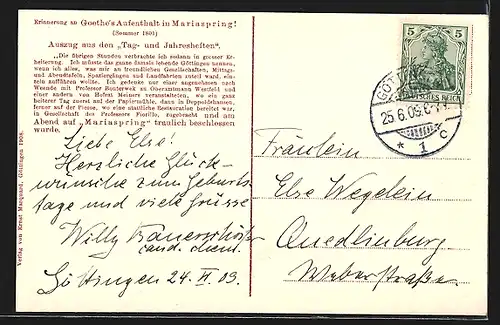 Erinnerung an Goethe's Aufenthalt in Mariaspring!
(Sommer 1801)
Auszug aus den „Tag- und Jahresheften“.
„Die übrigen Stunden verbrachte ich sodann in grosser Er-
heiterung. Ich müsste das ganze damals lebende Göttingen nennen,
wenn ich alles, was mir an freundlichen Gesellschaften, Mittags-
und Abendtafeln, Spaziergängen und Landfahrten zuteil ward, ein-
zeln aufführen wollte. Ich gedenke nur einer angenehmen nach
Weende mit Professor Bouterwek zu Oberamtmann Westfeld und
einer andern von Hofrat Meiners veranstalteten, wo ein ganz
heiterer Tag zuerst auf der Papiermühle, dann in Deppoldshausen,
ferner auf der Plesse, wo eine stattliche Restauration bereitet war,
in Gesellschaft des Professors Fiorillo, zugebracht und am
Abend auf „Mariaspring“ traulich beschlossen
wurde.
Liebe Else!
Herzliche Glück-
wünsche zum Geburts-
tage und viele Grüsse
Willy
cand.
Göttingen 24. VI 09.
Verlag von Ernst Göttingen 1908.
5 5
DEUTSCHES REICH
25.6.09.
* 1 c
Fräulein
Else Wegelein
Quedlinburg
Weberstraße.